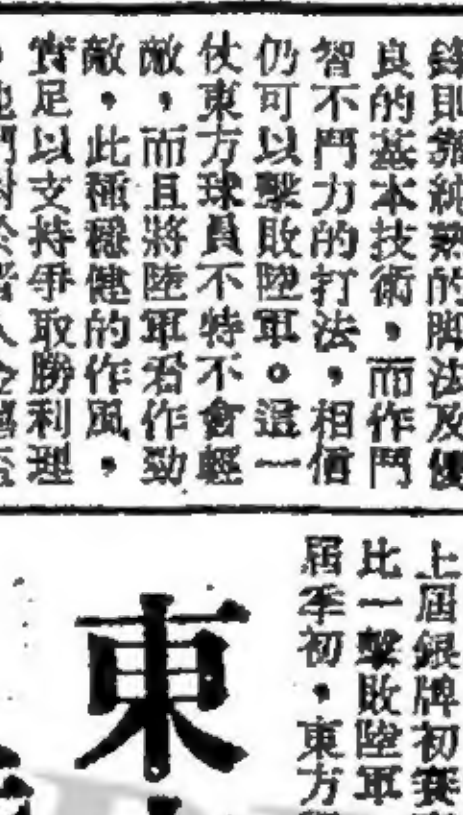 鋒則靠純熟的脚法及優
良的基本技術,而作鬥
智不鬥力的打法,相信
仍可以擊敗陸軍。這一
仗東方球員不特不會輕
敵,而且將陸軍看作勁
敵,此種穩健的作風,
實足以支持爭取勝利理
上屆銀牌初賽
比一擊敗陸軍
屆季初,東方
東